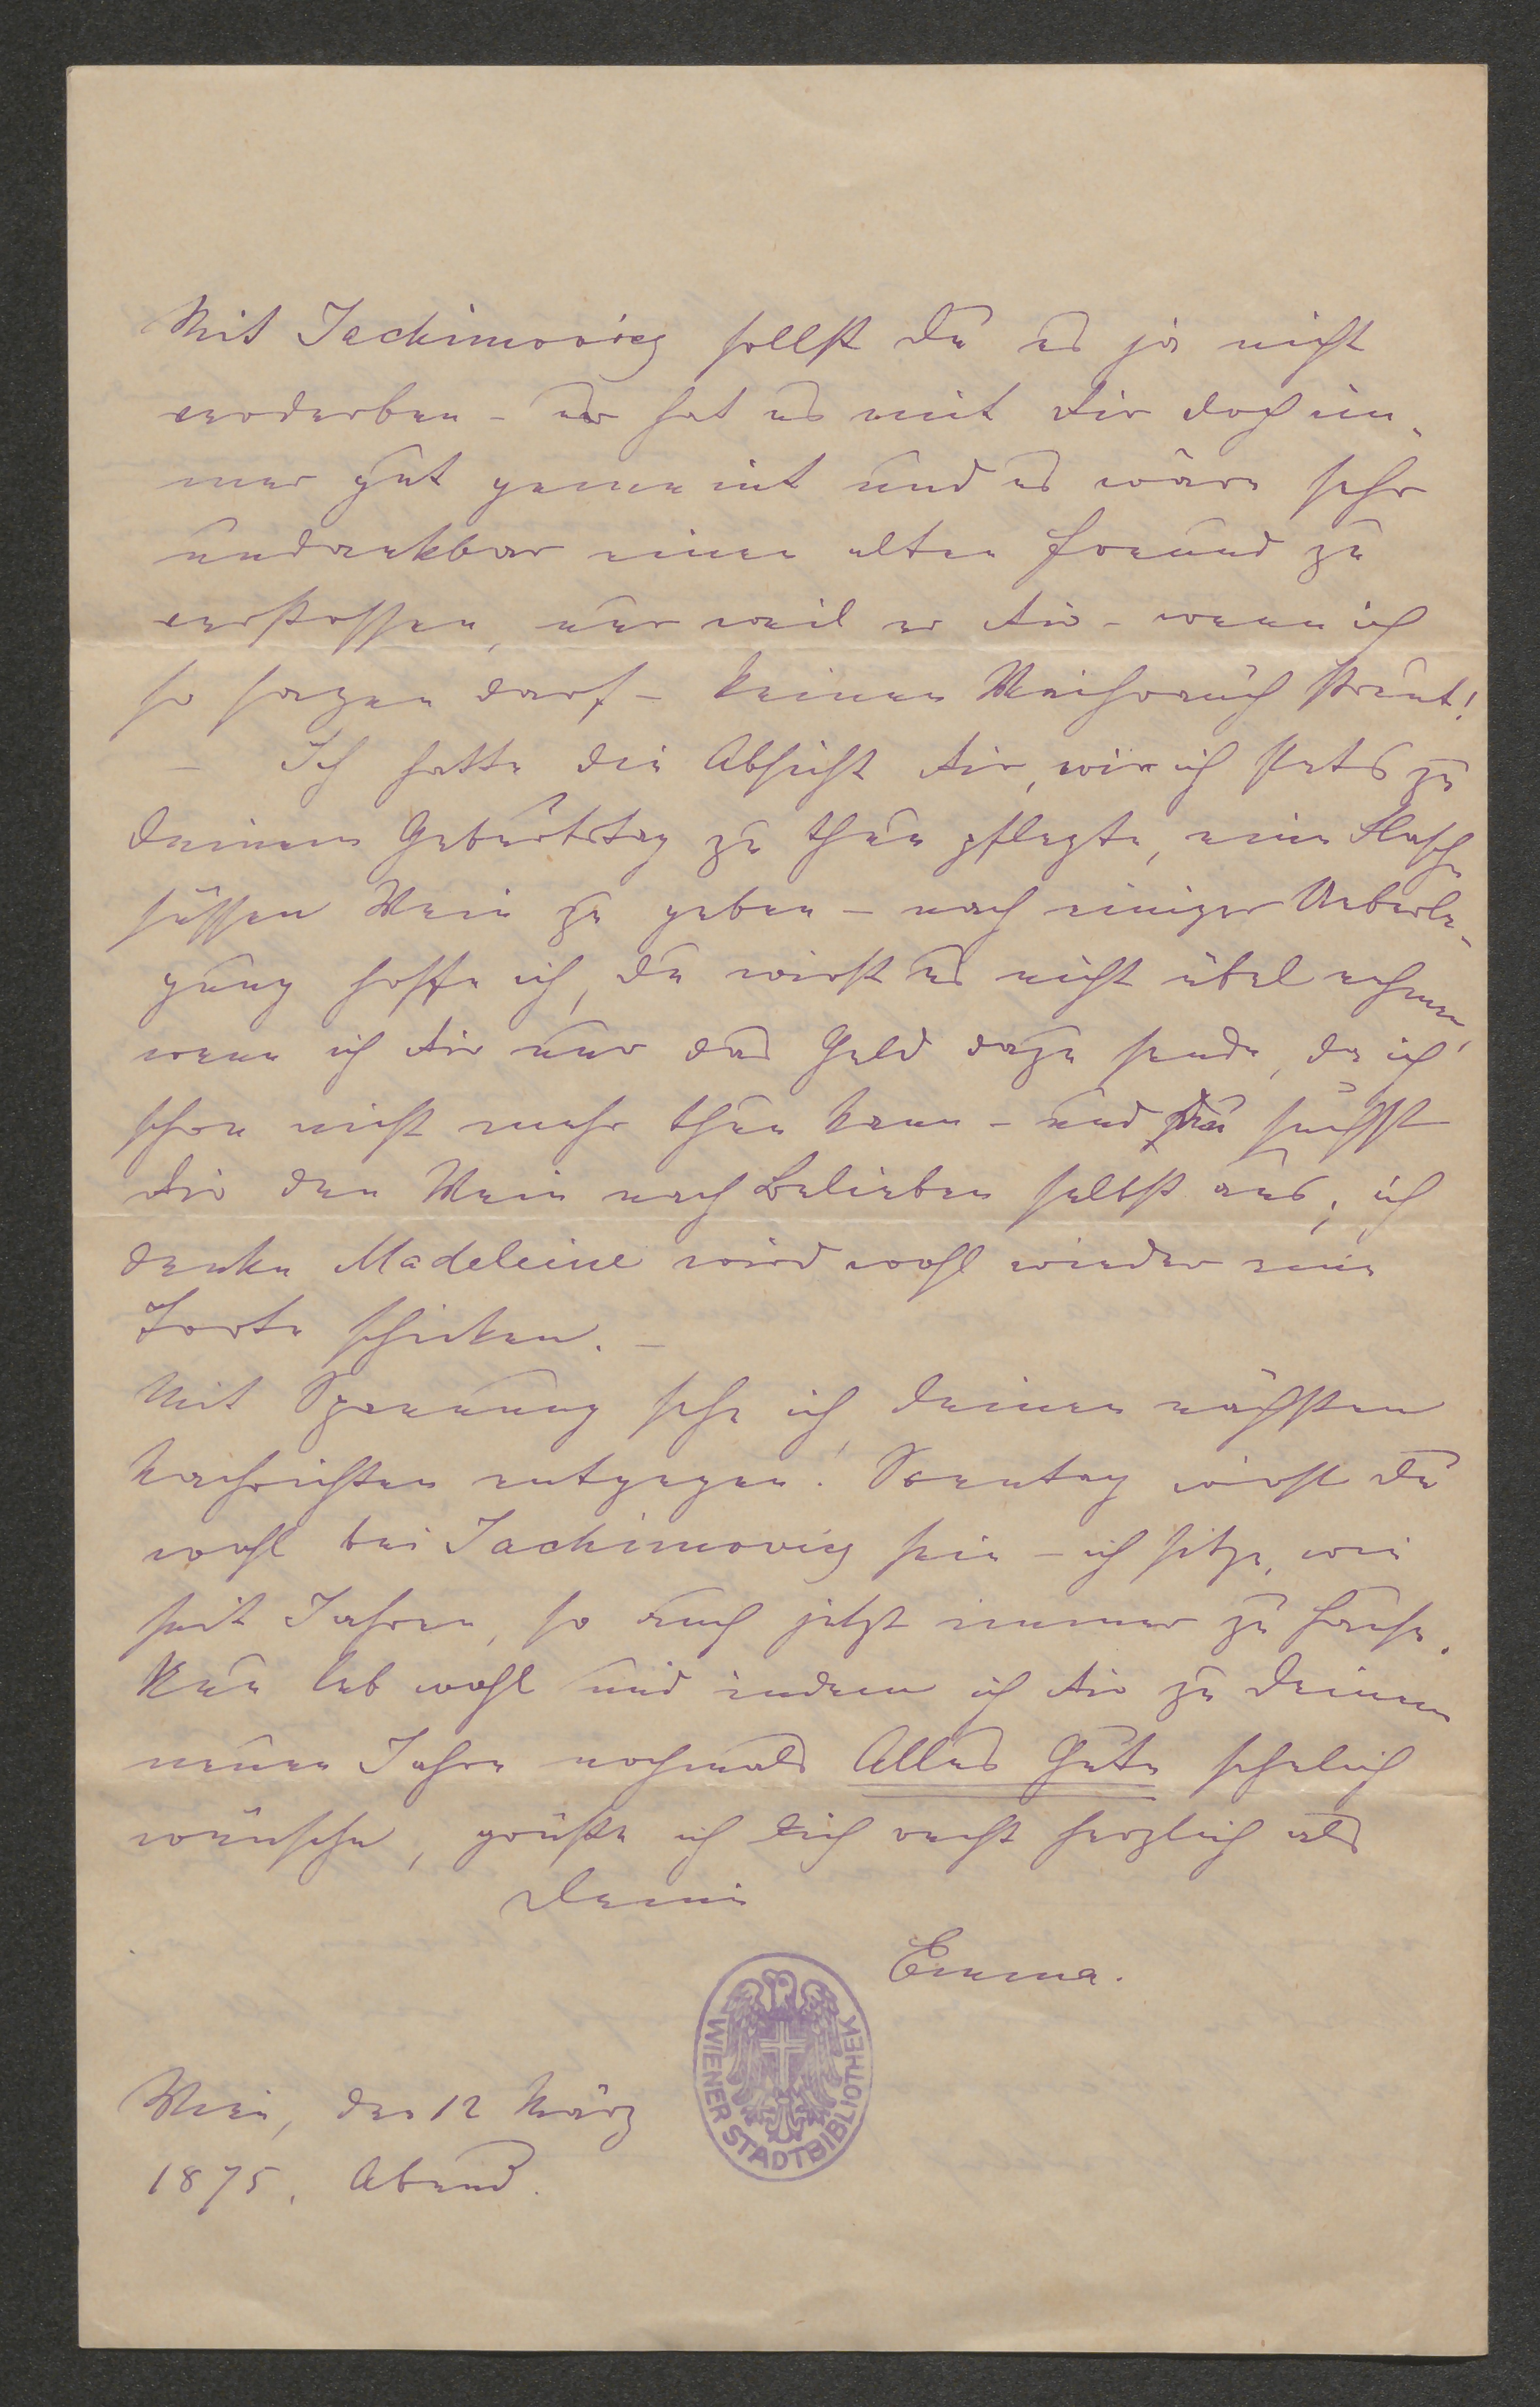 Mit Jachimovicz sollst Du es ja nicht
verderben – er hat es mit Dir doch im-
mer gut gemeint und es wäre sehr
undankbar einen alten Freund zu
verstossen, nur weil er Dir – wenn ich
so sagen darf – keinen Weihrauch streut!
– Ich hatte die Absicht Dir, wie ich stets zu
Deinem Geburtstag zu thun pflegte, eine Flasche
süssen Wein zu geben – nach einiger Ueberle-
gung hoffe ich, Du wirst es nicht übel nehmen,
wenn ich Dir nur das Geld dazu sende, da ich
schon nicht mehr thun kann – und Du suchst
Dir den Wein nach Belieben selbst aus; ich
denke Madeleine wird wohl wieder eine
Torte schicken. –
Mit Spannung sehe ich Deinen nächsten
Nachrichten entgegen. Sonntag wirst Du
wohl bei Jachimovicz sein – ich sitze, wie
seit Jahren, so auch jetzt immer zu Hause.
Nun leb wohl und indem ich Dir zu Deinem
neuen Jahre nochmals Alles Gute sehnlich
wünsche, grüsse ich Dich recht herzlich als
Deine
Emma.
WIENER STADTBIBLIOTHEK
Wien, den 12 März
1875. Abend.